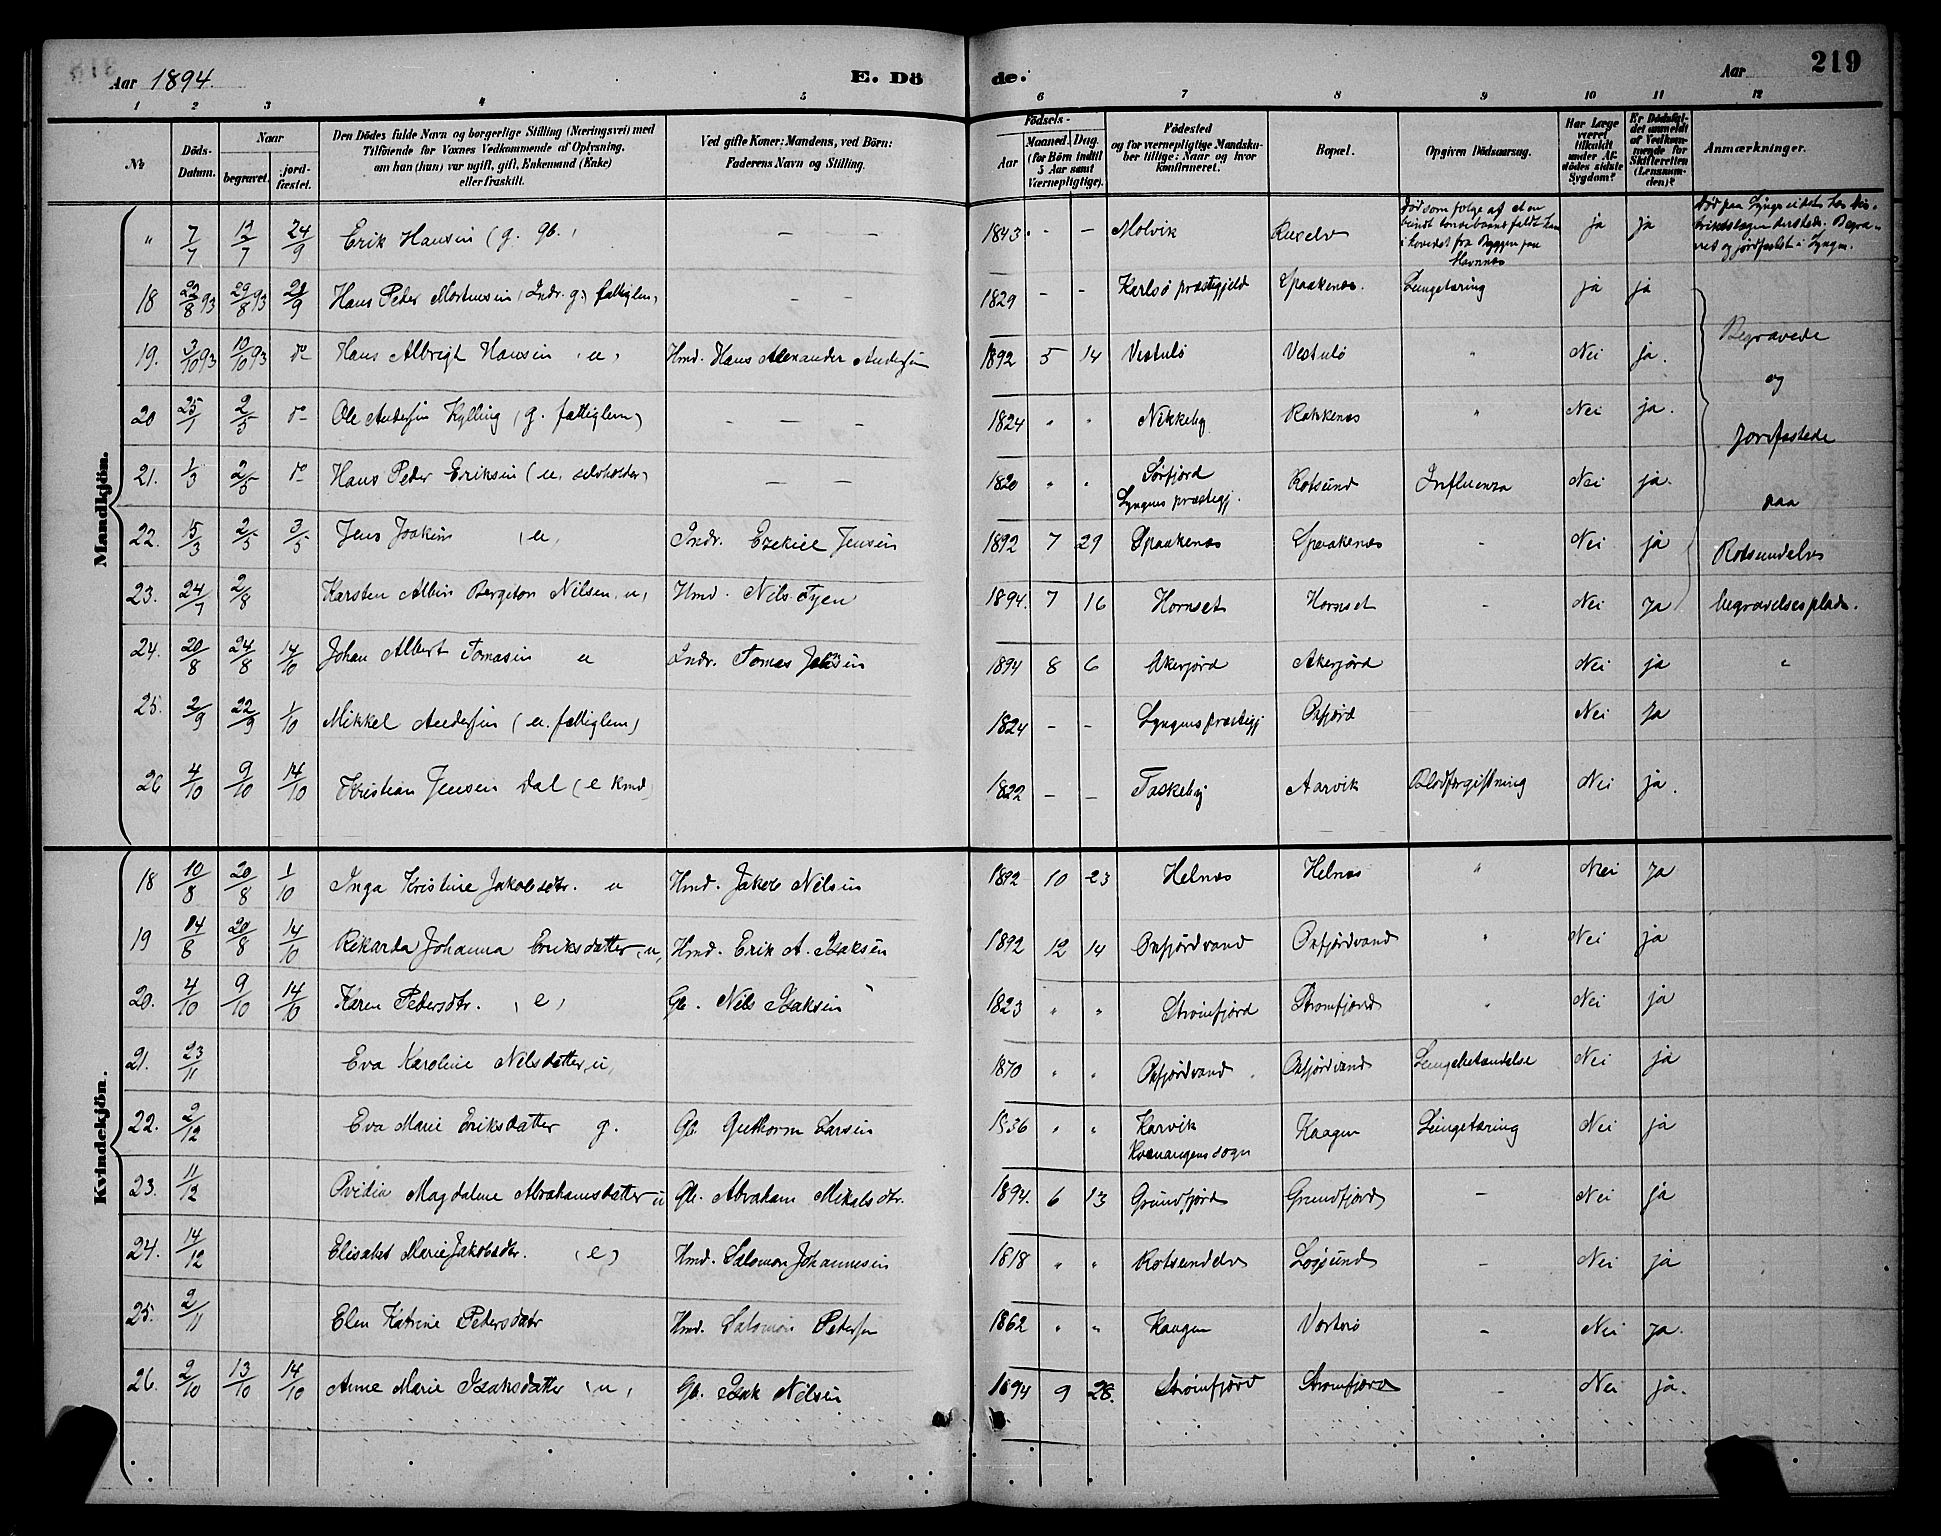 Aar 1894. E. Dö de. Aar 219
1 2 3 4 5 6 7 8 9 10 11 12
Nr.
Döds-Datum.
Naar
begravet.
jord-fæstet.
Den Dödes fulde Navn og borgerlige Stilling (Næringsvei) med
Tilföiende for Voxnes Vedkommende af Oplysning,
om han (hun) var ugift, gift, Enkemand (Enke)
eller fraskilt.
Ved gifte Koner: Mandens, ved Börn:
Faderens Navn og Stilling.
Födsels-
Aar
Maaned. Dag.
(for Börn indtil
5 Aar samt
Værnepligtige).
Födested
og for værnepligtige Mandska-
ber tillige: Naar og hvor
konfirmeret.
Bopæl.
Opgiven Dödsaarsag.
Har Læge
været
tilkaldt
under Af-
dödes sidste
Sygdom?
Er Dödsfal-
det anmeldt
af Vedkom-
mende for
Skifteretten
(Lensman-
den)?
Anmærkninger.
Mandkjön.
" 7/7 12/7 24/9 Erik Hansen (g. gb.) — — 1843 - - Molvik Ruselv Död som følge af at en
i hovedet fra Byggen paa
Havnnes ja ja
Død paa Lyngseidet hos
Begra-
vet og jordfæstet i Lyngen.
18 22/8 93 29/8 93 24/9 Hans Peter Mortensen (Indr. g.) fattiglem) - - 1829 - - Karlsö præstegjeld Spaakenes. Lungetæring ja ja
19. 3/10 93 10/10 93 do Hans Albrigt Hansen (u) Hmd. Hans Alexander Andersen 1892 5 14 Vestulö Vestulö " Nei ja.
20 25/1 2/5 do Ole Andersen Kylling (g. fattiglem) - - - 1824 " " Nikkeby Rakkenes " Nei ja.
21. 1/3 2/5 do Hans Peder Eriksen (u, selvholder) - - 1820 " " Sørfjord
Lyngens præstegj. Rotsund Influenza Nei ja.
22. 15/3 2/5 3/5 Jens Joakim (u) Indr. Ezekiel Jensen 1892 7 29 Spaakenes Spaakenes - Nei ja
23. 24/7 2/8 Karsten Albin Bergiton Nilsen, u, Hmd. Nils Fyen 1894. 7 16 Hornset Hornset - Nei ja
Begravede
og
jordfæstede
paa
Rotsundelvs
begravelsesplads.
24. 20/8 24/8 14/10 Johan Albert Tomasen u Indr. Tomas Johnsen 1894 8 6 Akerjörd Akerjörd Nei ja "
25. 2/9 22/9 1/10 Mikkel Andersen (u. fattiglem) 1824 - - Lyngens præstegj Oxfjörd Nei ja
26 4/10 9/10 14/10 Kristian Jensen Dal (e kmd) 1822 - - Taskeby Aarvik Blodforgiftning Nei ja.
Kvindekjön.
18 10/8 20/8 1/10 Inga Kristine Jakobsdtr. u Hmd. Jakob Nilsen 1892 10 23 Helnes Helnes " Nei ja
19 14/8 20/8 14/10 Rikarda Johanna Eriksdatter, u, Hmd. Erik A. Isaksen 1892 12 14 Oxfjördvand Oxfjördvand " Nei ja
20. 4/10 9/10 14/10 Karen Petersdtr. (e) Gb. Nils Isaksen 1823 " " Strömfjörd Strömfjörd " Nei ja
21. 23/11 Eva Karoline Nilsdatter, u, 1870 " " Oxfjördvand Oxfjördvand Lungebetændelse Nei ja
22. 2/12 Eva Marie Eriksdatter g. Gb. Guthorm Larsen 1836 " " Karvik
Kvænangens sogn Kaagen Lungetæring Nei ja
23. 11/12 Ovidia Magdalene Abrahamsdatter u Gb. Abraham Mikalsdtr. 1894. 6 13 Grundfjörd Grundfjörd - Nei ja
24. 14/12 Elisabet Marie Jakobsdtr. (e) Hmd. Salomon Johannesen 1818 " " Rotsundelv Logsund - Nei ja
25. 2/11 Elen Katrine Petersdatr Hmd. Salomon Petersen 1862 " " Kaagen Vorterö - Nei ja.
26. 2/10 13/10 14/10 Anne Marie Isaksdatter (u) Gb. Isak Nilsen 1894 9 28. Strömfjörd Strömfjörd - Nei ja.